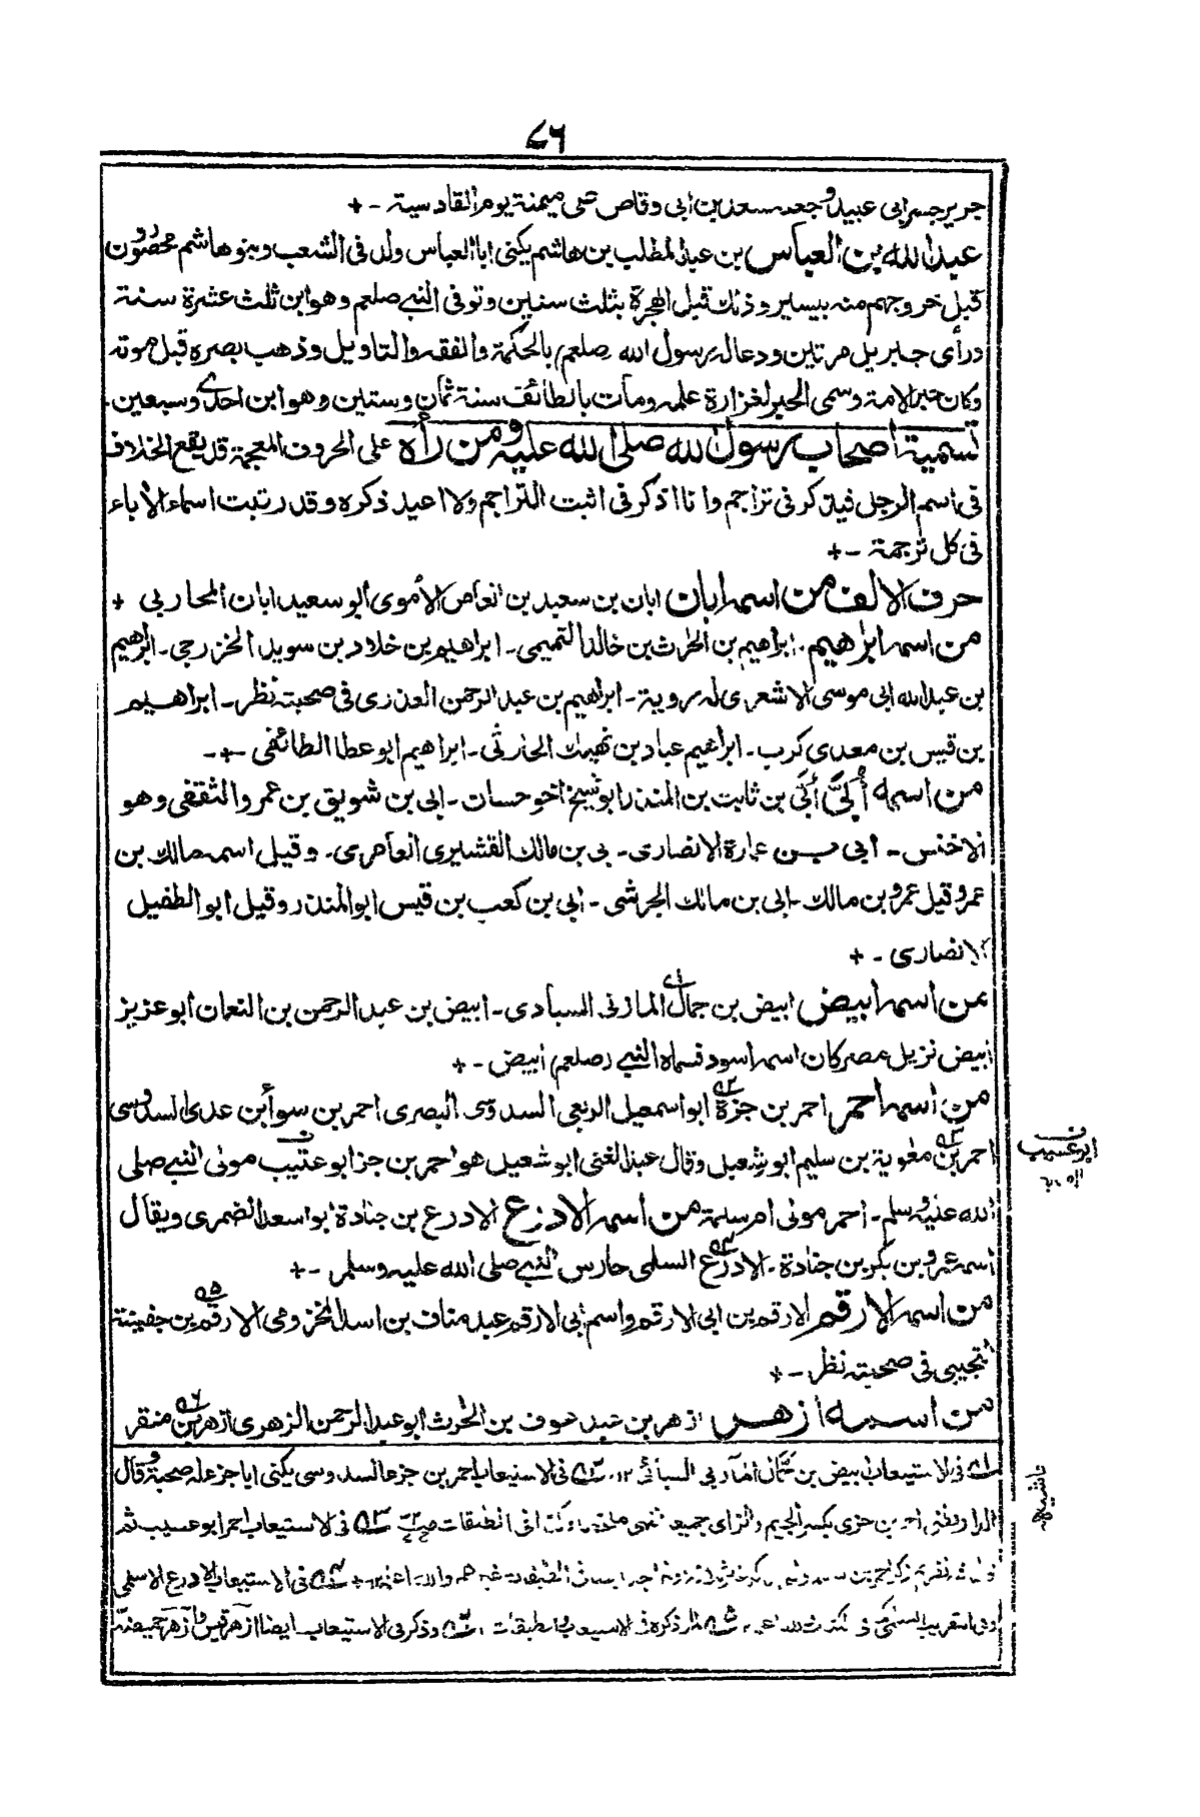 ٧٦
جرير جسر ابى عبيد وجعله سعد بن ابى وقاص على ميمنة يوم القادسية ـ +
عبد الله بن العباس بن عبد المطلب بن هاشم يكنى ابا العباس ولد فى الشعب وبنو هاشم محصورون
قبل خروجهم منه بيسير وذلك قبل الهجرة بثلث سنين وتوفى النبى صلعم وهو ابن ثلث عشرة سنة
ورأى جبريل مرتين ودعا له رسول الله صلعم بالحكمة والفقه والتاويل وذهب بصره قبل موته
وكان حبر الامة وسمى الحبر لغزارة علمه ومات بالطائف سنة ثمان وستين وهو ابن احدى وسبعين.
تسمية اصحاب رسول الله صلى الله عليه ومن رأه على الحروف المعجمة قد يقع الخلاف
فى اسم الرجل فيذكر فى تراجم وانا اذكر فى اثبت التراجم ولا اعيد ذكره وقد رتبت اسماء الأباء
فى كل ترجمة ـ +
حرف الالف من اسمه ابان ابان بن سعيد بن العاص الأموى ابو سعيد ابان المحاربى +
من اسمه ابراهيم. ابراهيم بن الحٰرث بن خالد التميمى ـ ابراهيم بن خلاد بن سويد الخزرجى ـ ابراهيم
بن عبد الله ابى موسى الاشعرى له روية ـ ابراهيم بن عبد الرحمن العذرى فى صحبته نظر ـ ابراهيم
بن قيس بن معدى كرب ـ ابراهيم عباد بن نهيك الحارثى ـ ابراهيم ابو عطا الطائفى ـ + ـ
من اسمه أُبَىّ أُبَىّ بن ثابت بن المنذر ابو شيخ اخو حسان ـ ابى بن شويق بن عمرو الثقفى وهو
الاخنس ـ ابى بن عمارة الانصارى ـ بى بن مالك القشيرى العامرى ـ وقيل اسمه مالك بن
عمرو قيل عمرو بن مالك ـ ابى بن مالك الجرشى ـ ابى بن كعب بن قيس ابو المنذر وقيل ابو الطفيل
الانصارى ـ +
من اسمه ابيض ابيض بن جمال المازنى السبادى ـ ابيض بن عبد الرحمن بن النعمان ابو عزيز
ابيض نزيل مصر كان اسمه اسود فسماه النبى صلعم ابيض ـ +
من اسمه احمر احمر بن جزة ابو اسمعيل الربعى السدوى البصرى احمر بن سوأ بن عدى السدوسى
احمر بن معٰوية بن سليم ابو شعبل وقال عبد الغنى ابو شعيل هو احمر بن جز ابو عتيب مولى النبى صلى
الله عليه وسلم ـ احمر مولى ام سلمة من اسمه الادرع الادرع بن جنادة ابو اسعد الضمرى ويقال
اسمه عمرو بن بكر بن جنادة ـ الادرع السلمى حارس النبى صلى الله عليه وسلم ـ +
من اسمه الارقم الارقم بن ابى الارقم واسم ابى الارقم عبد مناف بن اسد المخزومى الارقم بن جفينة
التجيبى فى صحبته نظر ـ +
من اسمه ازهر ازهر بن عبد عوف بن الحٰرث ابو عبد الرحمن الزهرى ازهر بن منقر
فى الاستيعاب ابيض بن حمال السبائى ١٢. فى الاستيعاب احمر بن جزء السدوسى يكنى ابا جزء له صحبة وقال
بكسر الجيم والزاى جميعا فى الطبقات فى الاستيعاب احمر ابو عسيب
فى الاستيعاب الادرع الاسلمى
وذكر فى الاستيعاب ايضا ازهر بن قيس
ابو عسيب